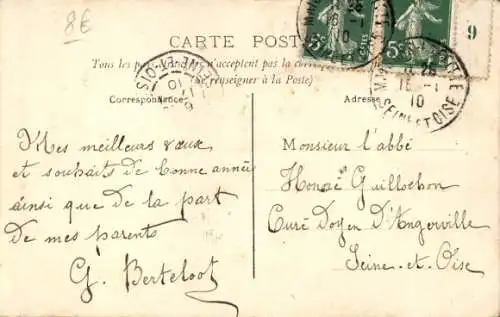 8€
CARTE POSTALE
9
Tous les pays étrangers n'acceptent pas la correspondance
(Se renseigner à la Poste)
Correspondance
Adresse
Mes meilleurs vœux
et souhaits de bonne année
ainsi que de la part
de mes parents
G. Berteloot
Monsieur l'abbé
Honoré Guillochon
Curé Doyen d'Angerville
Seine-et-Oise
5
5
10
SEINE-ET-OISE